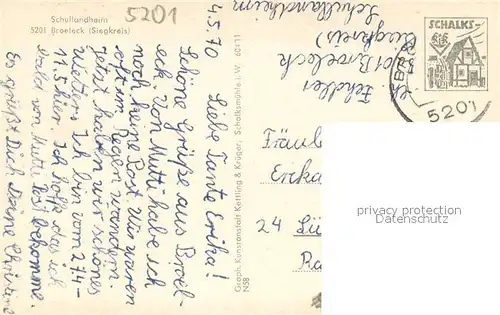 Schullandheim
5201 Broeleck (Siegkreis)
5201
4.5.70
Liebe Tante Erika!
Schöne Grüße aus Bröl-
eck. Von Mutti habe ich
noch keine Post. Wir waren
oft im Regen wandern.
Jetzt haben wir schönes
Wetter. Ich bin vom 27.4-
11.5 hier. Ich hoffe das ich
bald von Mutti Post bekomme.
Es grüßt Dich Deine Christine
Graph. Kunstanstalt Kettling & Krüger, Schalksmühle i. W.
N58
Schullandheim
(Siegkreis)
5201 Broeleck
SCHALKS-
5201
Fräulein
Erika
24 Lü
privacy protection
Datenschutz